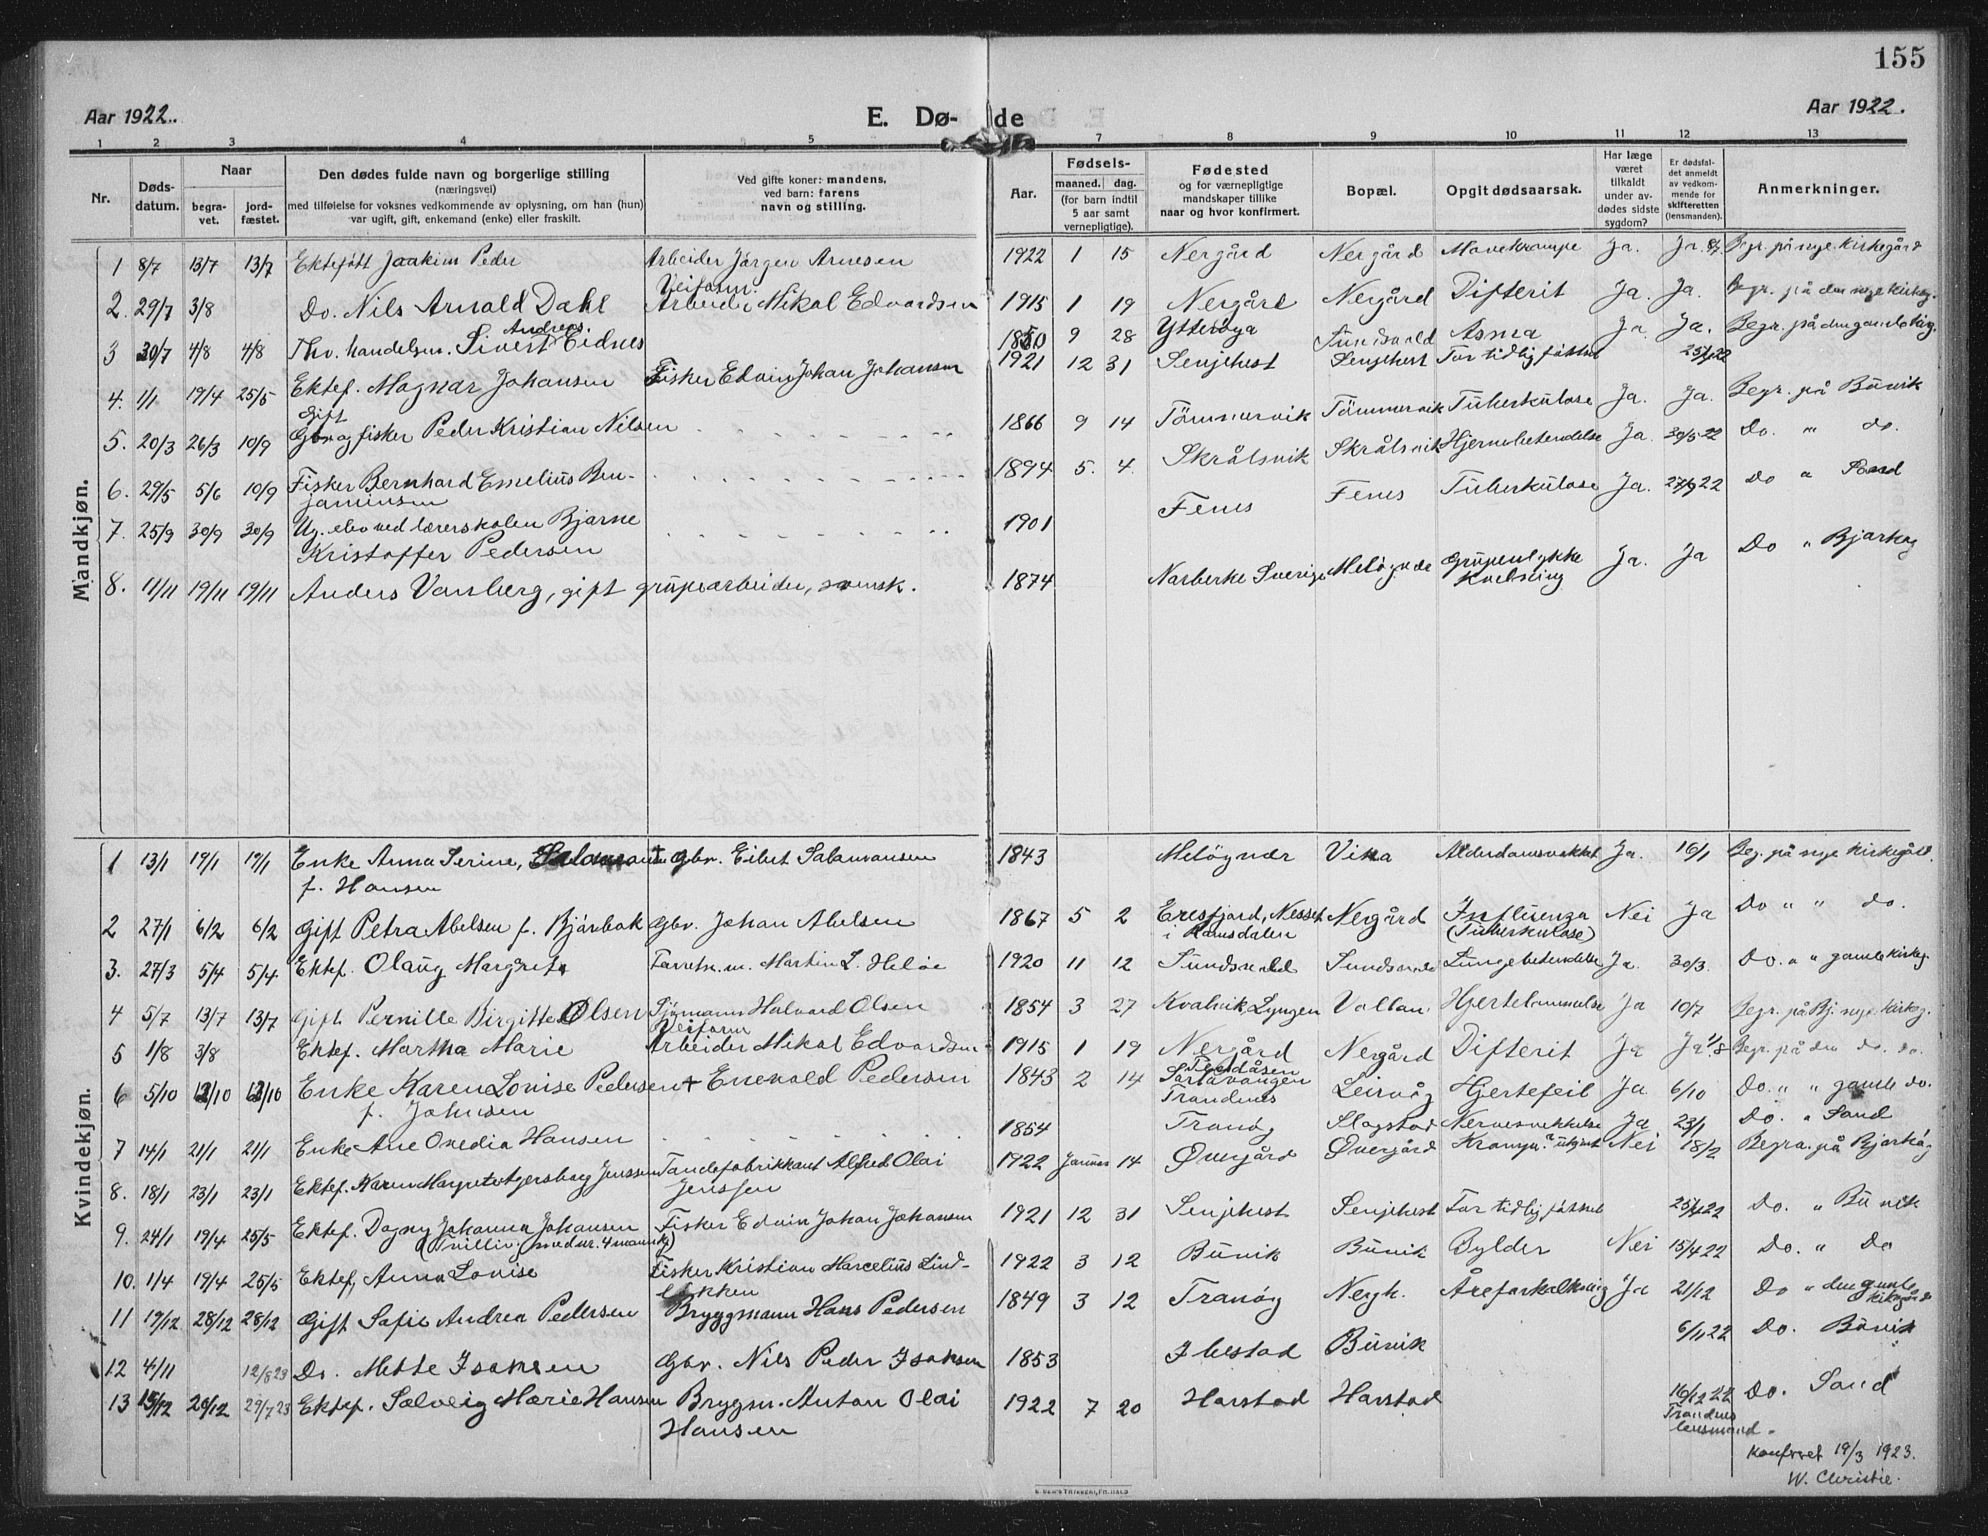 155
Aar 1922.
E. Dø- de
Aar 1922.
1 2 3 4 5 7 8 9 10 11 12 13
Nr.
Døds-
datum.
Naar
begra-
vet.
jord-
fæstet.
Den dødes fulde navn og borgerlige stilling
(næringsvei)
med tilføielse for voksnes vedkommende av oplysning, om han (hun)
var ugift, gift, enkemand (enke) eller fraskilt.
Ved gifte koner: mandens,
ved barn: farens
navn og stilling.
Aar.
Fødsels-
maaned. dag.
(for barn indtil
5 aar samt
vernepligtige).
Fødested
og for værnepligtige
mandskaper tillike
naar og hvor konfirmert.
Bopæl.
Opgit dødsaarsak.
Har læge
været
tilkaldt
under av-
dødes sidste
sygdom?
Er dødsfal-
det anmeldt
av vedkom-
mende for
skifteretten
(lensmanden).
Anmerkninger.
Mandkjøn.
1 8/7 13/7 13/7 Ektefött Joakim Peder Arbeider Jørgen Arnesen 1922 1 15 Nergård Nergård Mavekrampe Ja. Ja. 8/7 Begr. på nye kirkegård
Veiform.
2. 29/7 3/8 Do. Nils Arnold Dahl Arbeider Mikal Edvardsen 1915 1 19 Nergård Nergård Difterit Ja. Ja. Begr. på den nye kirkeg.
Andreas
3 30/7 4/8 4/8 Fhv. handelsm. Sivert Eidnes 1850 9 28 Ytterøya Sundsvold Asma Ja Ja. Begr. på den gamle kirkeg.
4. 1/1 19/4 25/5 Ektef. Magnar Johansen Fisker Edvin Johan Johansen 1921 12 31 Senjehest Senjehest For tidlig født 25/4 22 Begr. på Büvik
Gift
5. 20/3 26/3 10/9 Gbr og fisker Peder Kristian Nilsen 1866 9 14 Tömmervik Tömmervik Tüberkülose Ja. Ja. Do. " do.
6. 29/5 5/6 10/9 Fisker Bernhard Emeliüs Ben-
jaminsen 1894 5. 4. Skrålsvik Skrålsvik Hjernebetendelse Ja. 30/5 22 Do " Sand
7. 25/9 30/9 30/9 Ug. elev ved lærerskolen Bjarne
Kristoffer Pedersen 1901 Fenes Fenes Tüberkülose Ja. 27/9 22 Do " Bjarköy
8. 11/11 19/11 19/11 Anders Vanberg, gift grüpearbeider, svensk. 1874 Narberke Sverige Melöyvær Grüpeülykke
Kvelning Ja. Ja
Kvindekjøn.
1 13/1 19/1 19/1 Enke Anna Serine, Salamonsen
f. Hansen † Gbr. Eilert Salamonsen 1843 Melöyvær Vika Alderdomsvekket Ja. 16/1 Beg. på nye kirkegård.
2 27/1 6/2 6/2 Gift Petra Abelsen f. Bjørbak Gbr. Johan Abelsen 1867 5 2 Eresfjord, Nesset
i Romsdalen Nergård Inflüenza
(Tüberkülose) Nei Ja Do " " do.
3. 27/3 5/4 5/4 Ektef. Olaüg Margrete Forretn.m. Martin L. Heløe 1920 11 12 Sündsvold Sundsvold Lüngebetendelse Ja 30/3. Do. " " gamle kirkeg.
4 5/7 13/7 13/7 Gift Pernille Birgitte Olsen Sjømann Halvard Olsen 1854 3 27 Kvalvik, Lyngen Vollan Hjertelammelse Ja 10/7 Begr. på Bj. nye kirkeg.
Veiform
5 1/8 3/8 Ektef. Martha Marie Arbeider Mikal Edvardsen 1915 1 19 Nergård Nergård Difterit Ja Ja 1/8 Begr. på den do. do.
6 5/10 12/10 12/10 Enke Karen Lovise Pedersen
f. Johnsen † Enevold Pedersen 1843 2 14 Sørvangen
Trondenes Leirvåg Hjertefeil Ja 6/10 Do. " " gamle do.
7 14/1 21/1 21/1 Enke Ane Ovedia Hansen 1854 Tranöy Slagstad Nervesvekkelse Ja 23/1 Do. " Sand
8. 18/1 23/1 23/1 Ektef. Karen Margrete Agersborg Jenssen Tøndefabrikkant Alfred Olai
Jenssen 1922 Januar 14 Øvergård Øvergård Krampe Nei 18/2 Begra. på Bjarköy
9. 24/1 19/4 25/5 Ektef. Dagny Johanna Johansen
(Tvilling med nr. 4 mannk.) Fisker Edvin Johan Johansen 1921 12 31 Senjehest Senjehest For tidlig født 25/4 22 Do. " Büvik
10. 1/4 19/4 25/5 Ektef, Anna Lovise Fisker Kristian Marceliüs Lind-
bakken 1922 3 12 Büvik Büvik Bylder Nei 15/4 22 Do. " Do
11 19/12 28/12 28/12 Gift Sofie Andrea Pedersen Bryggmann Hans Pedersen 1849 3 12 Tranöy Nergh. Åreforkalkning Ja 21/12 Do " den gamle
kirkegård
12 4/11 12/8 23 Do. Mette Isaksen Gbr. Nils Peder Isaksen 1853 Ibestad Büvik 6/11 22 Do. Büvik
13 15/12 20/12 29/7 23 Ektef. Solveig Marie Hansen Brygm. Anton Olai
Hansen 1922 7 20 Harstad Harstad 16/12 22
Trondnes
lensmand. Do. Sand
Konferert 19/3 1923.
W. Christie.